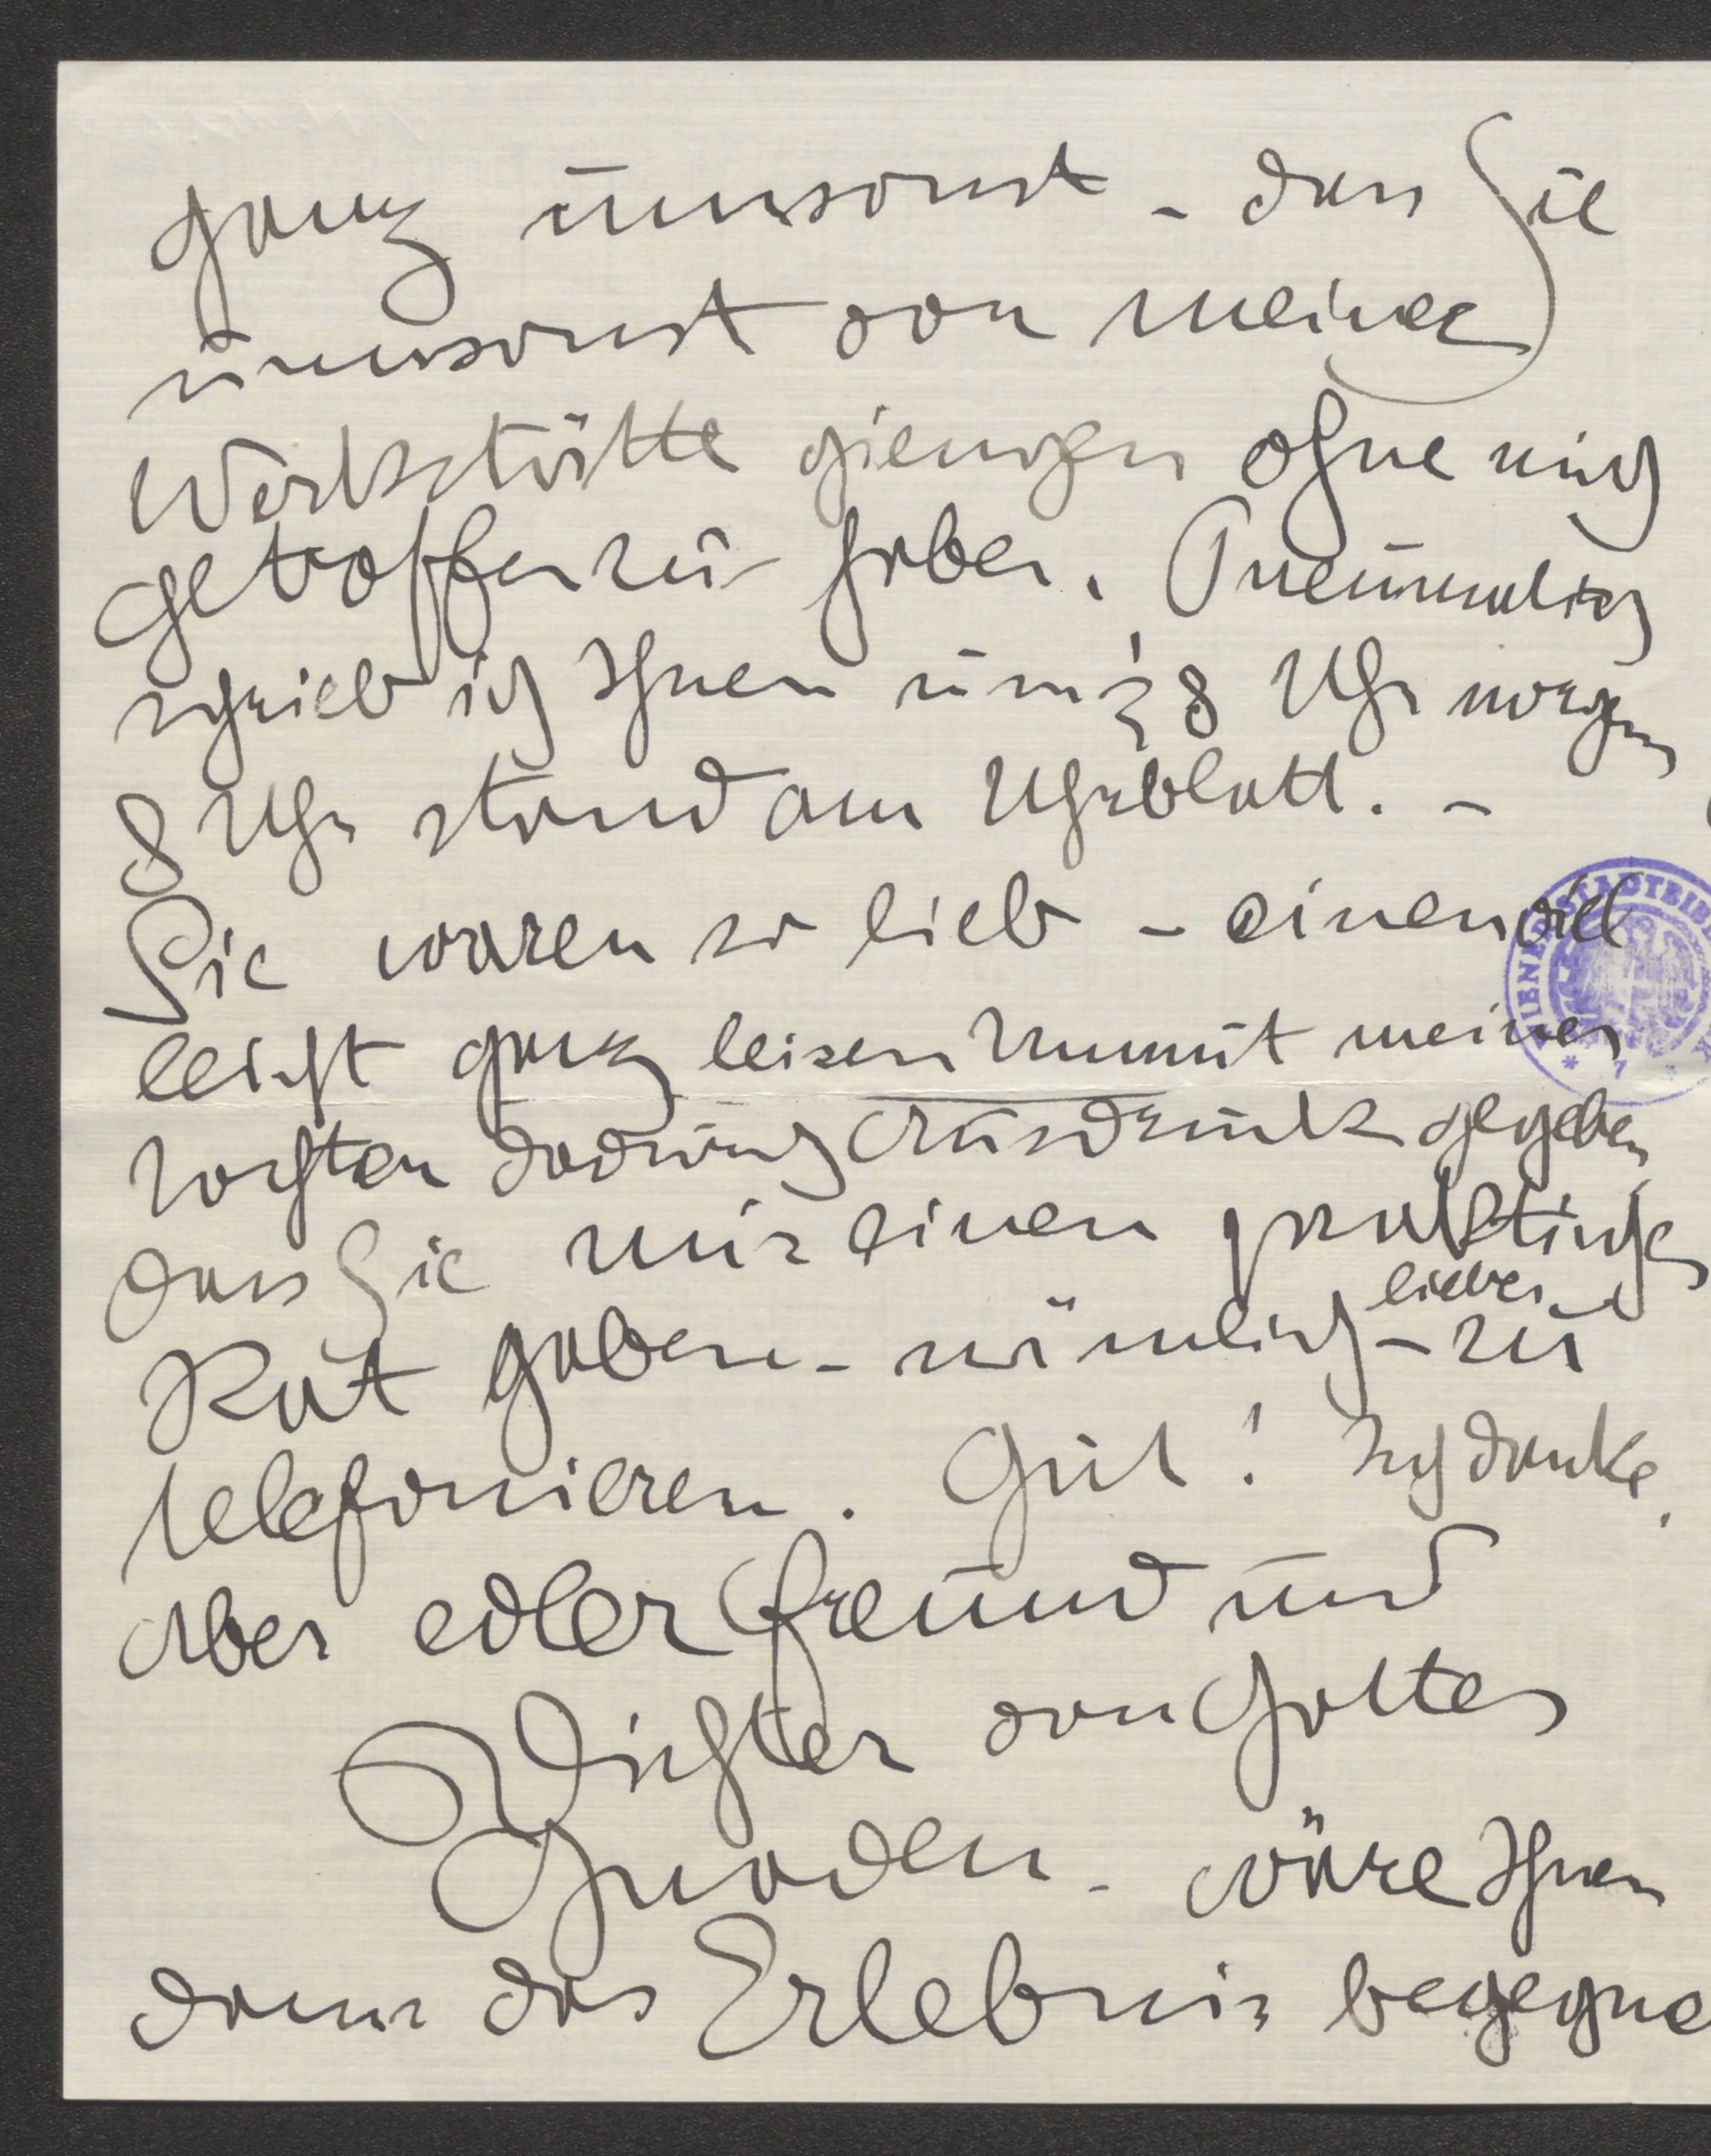 ganz umsonst – dass Sie
umsonst von meiner
Werkstätte giengen ohne mich
getroffen zu haben. Pneumatisch
schrieb ich Ihnen um ½ 8 Uhr morgens
8 Uhr stand am Uhrblatt. –
Sie waren so lieb – einen viel
leicht ganz leisen Unmut meiner
sachten dadurch Ausdruck gegeben
dass Sie mir einen praktischen
Rat gaben – nämlich – lieber zu
telefonieren. Gut! Ich danke.
Aber edler Freund und
Dichter von Gottes
Gnaden – wäre Ihnen
dann das Erlebnis begegne
WIENER STADTBIB
* 7 *